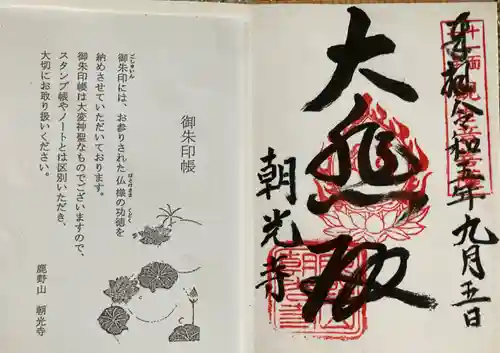 奉拝 令和五年九月五日
十一面観世音
大悲殿
朝光寺
御朱印帳
御朱印には、お参りされた仏様の功徳を
納めさせていただいております。
御朱印帳は大変神聖なものでございますので、
スタンプ帳やノートとは区別いただき、
大切にお取り扱いください。
鹿野山 朝光寺